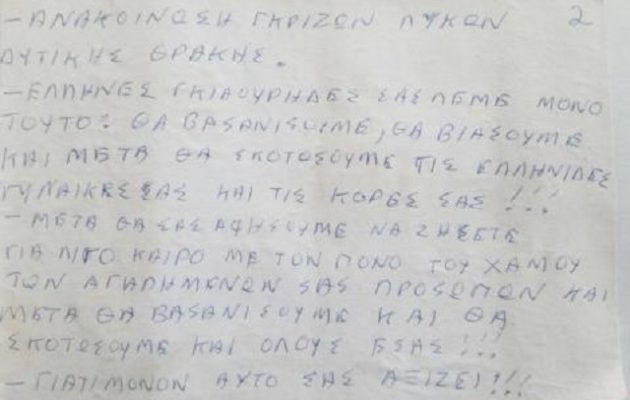 - ΑΝΑΚΟΙΝΩΣΗ ΓΚΡΙΖΩΝ ΛΥΚΩΝ 2
ΔΥΤΙΚΗΣ ΘΡΑΚΗΣ.
- ΕΛΛΗΝΕΣ ΓΚΙΑΟΥΡΗΔΕΣ ΣΑΣ ΛΕΜΕ ΜΟΝΟ
ΤΟΥΤΟ: ΘΑ ΒΑSΑΝΙSΟΥΜΕ, ΘΑ ΒΙΑΣΟΥΜΕ
ΚΑΙ ΜΕΤΑ ΘΑ ΣΚΟΤΩΣΟΥΜΕ ΤΙΣ ΕΛΛΗΝΙΔΕΣ
ΓΥΝΑΙΚΕΣ ΣΑΣ ΚΑΙ ΤΙΣ ΚΟΡΕΣ ΣΑΣ!!!
- ΜΕΤΑ ΘΑ ΣΑΣ ΑΦΗΣΟΥΜΕ ΝΑ ΖΗΣΕΤΕ
ΓΙΑ ΛΙΓΟ ΚΑΙΡΟ ΜΕ ΤΟΝ ΠΟΝΟ ΤΟΥ ΧΑΜΟΥ
ΤΩΝ ΑΓΑΠΗΜΕΝΩΝ SΑS ΠΡΟΣΩΠΩΝ ΚΑΙ
ΜΕΤΑ ΘΑ ΒΑSΑΝΙΣΟΥΜΕ ΚΑΙ ΘΑ
ΣΚΟΤΩΣΟΥΜΕ ΚΑΙ ΟΛΟΥΣ ΕΣΑΣ!!!
- ΓΙΑΤΙ ΜΟΝΟΝ ΑΥΤΟ ΣΑΣ ΑΞΙΖΕΙ!!!